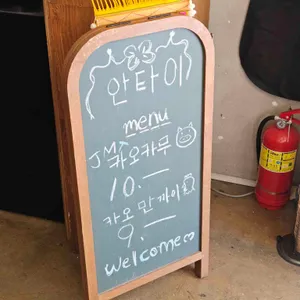 안타이
menu
JMT 카오카무
10.—
카오만까이
9.—
welcome♡